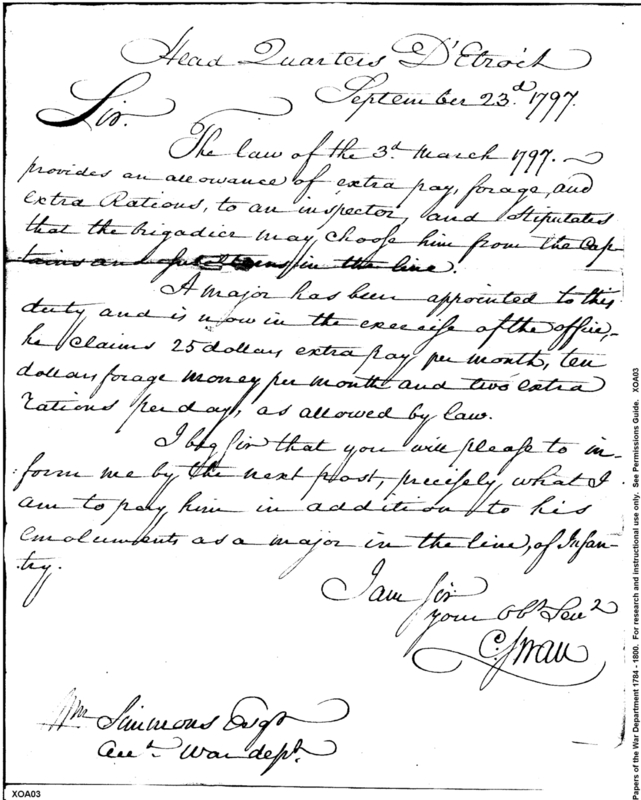 Head Quarters D'Etroit
September 23.d 1797.
Sir.
The law of the 3.d March 1797. ~
provides an allowance of extra pay, forage, and
extra Rations, to an inspector, and Stipulates
that the brigadier may choose him from the Cap
tains and in the line.
A major has been appointed to this
duty and is now in the exercise of the office,-
he claims 25 dollars extra pay per month, ten
dollars forage money per month and two extra
rations per day, as allowed by law.
I beg sir that you will please to in-
:form me by the next post, precisely what I
am to pay him in addition to his
emoluments as a major in the line, of Infan-
:try.
I am sir
your Obt Servt
C. Swan
Wm Simmons Esqr
Acct War dept.
XOA03
Papers of the War Department 1784 - 1800. For research and instructional use only. See Permissions Guide. XOA03